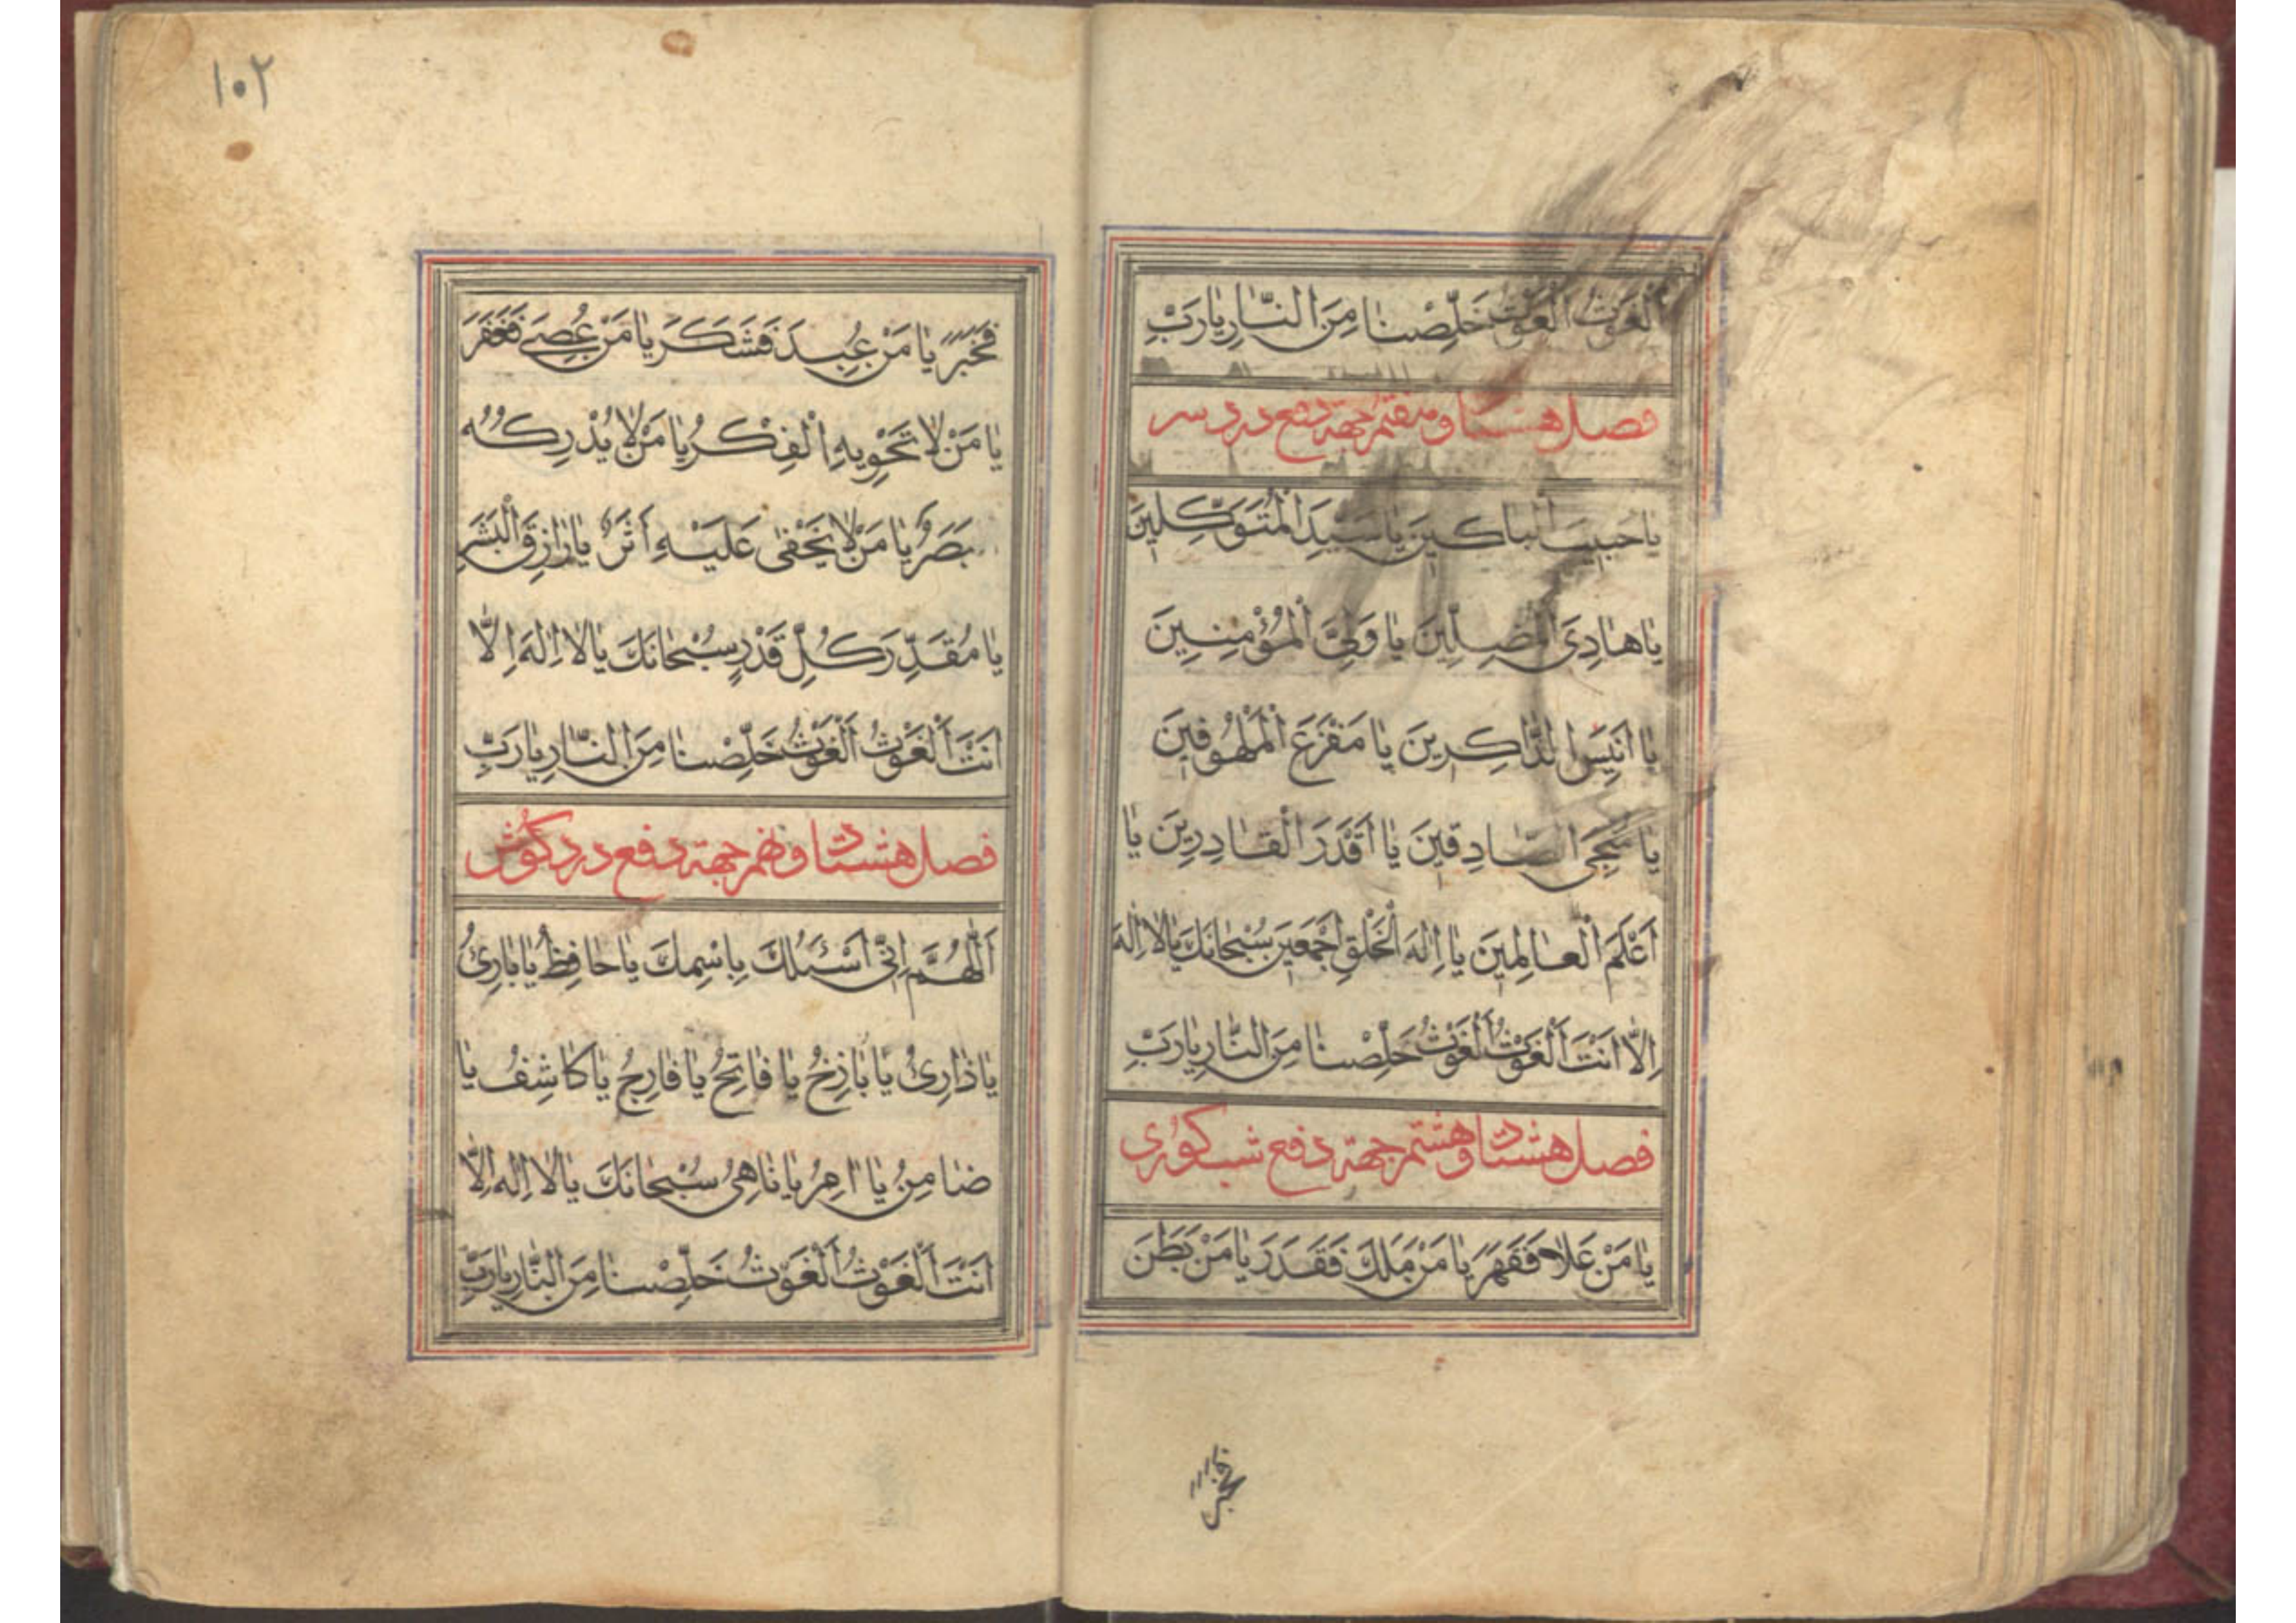 اَلْغَوْثُ اَلْغَوْثُ خَلِّصْنٰا مِنَ النّٰارِ يٰارَبِّ
فصل هشتاد و هفتم جهة دفع درد سر
يٰا حَبيبَ الْباكينَ يٰا سَيِّدَ الْمُتَوَكِّلينَ
يٰا هٰادِيَ الْمُضِلّينَ يٰا وَلِيَّ الْمُؤْمِنينَ
يٰا اَنيسَ الذّٰاكِرينَ يٰا مَفْزَعَ الْمَلْهُوفينَ
يٰا مُنْجِيَ الصّٰادِقينَ يٰا اَقْدَرَ الْقٰادِرينَ يٰا
اَعْلَمَ الْعٰالِمينَ يٰا اِلٰهَ الْخَلْقِ اَجْمَعينَ سُبْحٰانَكَ يٰا لاٰ اِلٰهَ
اِلّٰا اَنْتَ اَلْغَوْثُ اَلْغَوْثُ خَلِّصْنٰا مِنَ النّٰارِ يٰارَبِّ
فصل هشتاد و هشتم جهة دفع شب كورى
يٰا مَنْ عَلاٰ فَقَهَرَ يٰا مَنْ مَلَكَ فَقَدَرَ يٰا مَنْ بَطَنَ
فخبر
١٠٢
فَخَبَرَ يٰا مَنْ عُبِدَ فَشَكَرَ يٰا مَنْ عُصِيَ فَغَفَرَ
يٰا مَنْ لاٰ تَحْويهِ الْفِكَرُ يٰا مَنْ لاٰ يُدْرِكُهُ
بَصَرٌ يٰا مَنْ لاٰ يَخْفىٰ عَلَيْهِ اَثَرٌ يٰا رٰازِقَ الْبَشَرِ
يٰا مُقَدِّرَ كُلِّ قَدْرٍ سُبْحٰانَكَ يٰا لاٰ اِلٰهَ اِلّٰا
اَنْتَ اَلْغَوْثُ اَلْغَوْثُ خَلِّصْنٰا مِنَ النّٰارِ يٰارَبِّ
فصل هشتاد و نهم جهة دفع درد گوش
اَللّٰهُمَّ اِنّي اَسْئَلُكَ بِاسْمِكَ يٰا حٰافِظُ يٰا بٰارِئُ
يٰا ذٰارِئُ يٰا بٰاذِخُ يٰا فٰاتِحُ يٰا فٰارِجُ يٰا كٰاشِفُ يٰا
ضٰامِنُ يٰا اٰمِرُ يٰا نٰاهِيُ سُبْحٰانَكَ يٰا لاٰ اِلٰهَ اِلّٰا
اَنْتَ اَلْغَوْثُ اَلْغَوْثُ خَلِّصْنٰا مِنَ النّٰارِ يٰارَبِّ